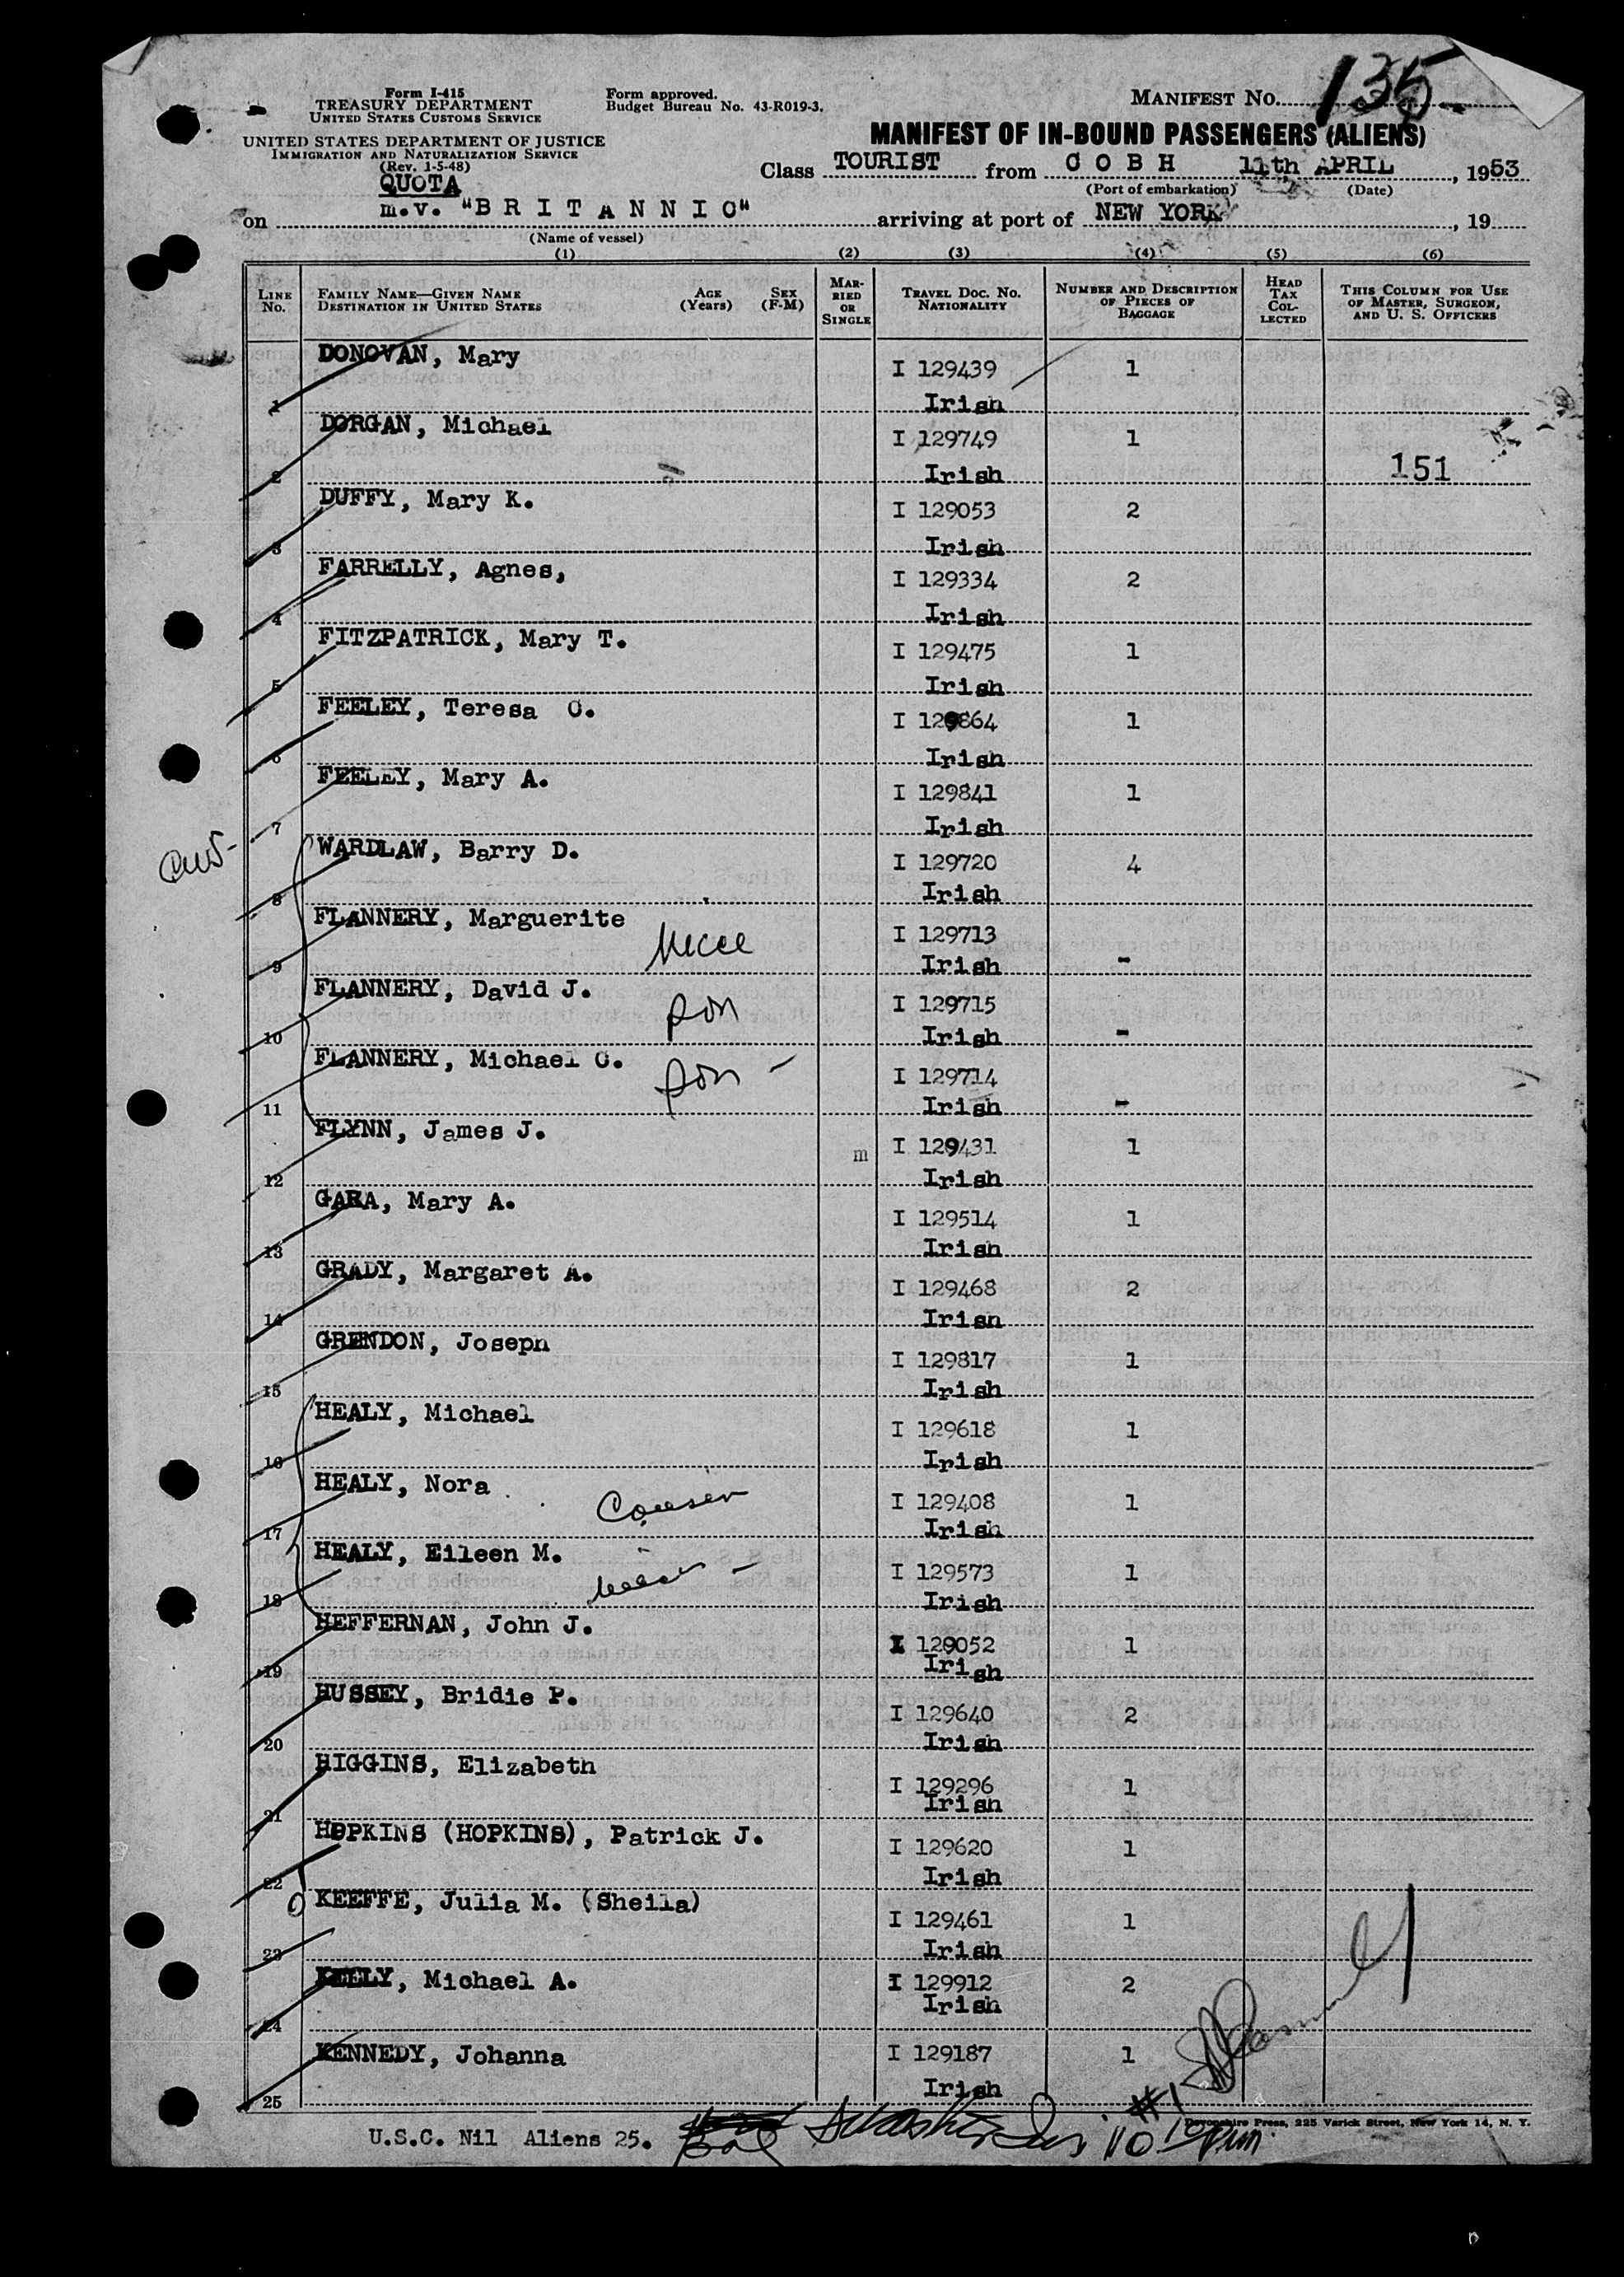 Form I-415
TREASURY DEPARTMENT
UNITED STATES CUSTOMS SERVICE
Form approved.
Budget Bureau No. 43-R019-3.
MANIFEST NO. 135
UNITED STATES DEPARTMENT OF JUSTICE
IMMIGRATION AND NATURALIZATION SERVICE
(Rev. 1-5-48)
MANIFEST OF IN-BOUND PASSENGERS (ALIENS)
QUOTA
Class TOURIST from COBH 11th APRIL, 1953
(Port of embarkation) (Date)
on m.v. "BRITANNIC" arriving at port of NEW YORK, 19
(Name of vessel)
(1) (2) (3) (4) (5) (6)
LINE NO. FAMILY NAME—GIVEN NAME DESTINATION IN UNITED STATES AGE (Years) SEX (F-M) MARRIED OR SINGLE TRAVEL DOC. NO. NATIONALITY NUMBER AND DESCRIPTION OF PIECES OF BAGGAGE HEAD TAX COLLECTED THIS COLUMN FOR USE OF MASTER, SURGEON, AND U. S. OFFICERS
DONOVAN, Mary I 129439 1
1 Irish
DORGAN, Michael I 129749 1
2 Irish 151
DUFFY, Mary K. I 129053 2
3 Irish
FARRELLY, Agnes, I 129334 2
4 Irish
FITZPATRICK, Mary T. I 129475 1
5 Irish
FEELEY, Teresa C. I 129864 1
6 Irish
FEELEY, Mary A. I 129841 1
7 Irish
WARDLAW, Barry D. I 129720 4
8 Irish
FLANNERY, Marguerite Niece I 129713 -
9 Irish
FLANNERY, David J. Son I 129715 -
10 Irish
FLANNERY, Michael C. Son - I 129714 -
11 Irish
FLYNN, James J. m I 129431 1
12 Irish
GARA, Mary A. I 129514 1
13 Irish
GRADY, Margaret A. I 129468 2
14 Irish
GRENDON, Joseph I 129817 1
15 Irish
HEALY, Michael I 129618 1
16 Irish
HEALY, Nora Cousin I 129408 1
17 Irish
HEALY, Eileen M. I 129573 1
18 Irish
HEFFERNAN, John J. I 129052 1
19 Irish
HUSSEY, Bridie P. I 129640 2
20 Irish
HIGGINS, Elizabeth I 129296 1
21 Irish
HOPKINS (HOPKINS), Patrick J. I 129620 1
22 Irish
O' KEEFFE, Julia M. (Sheila) I 129461 1
23 Irish
KEELY, Michael A. I 129912 2
24 Irish
KENNEDY, Johanna I 129187 1
25 Irish
#1
Devonshire Press, 225 Varick Street, New York 14, N. Y.
U.S.C. Nil Aliens 25.